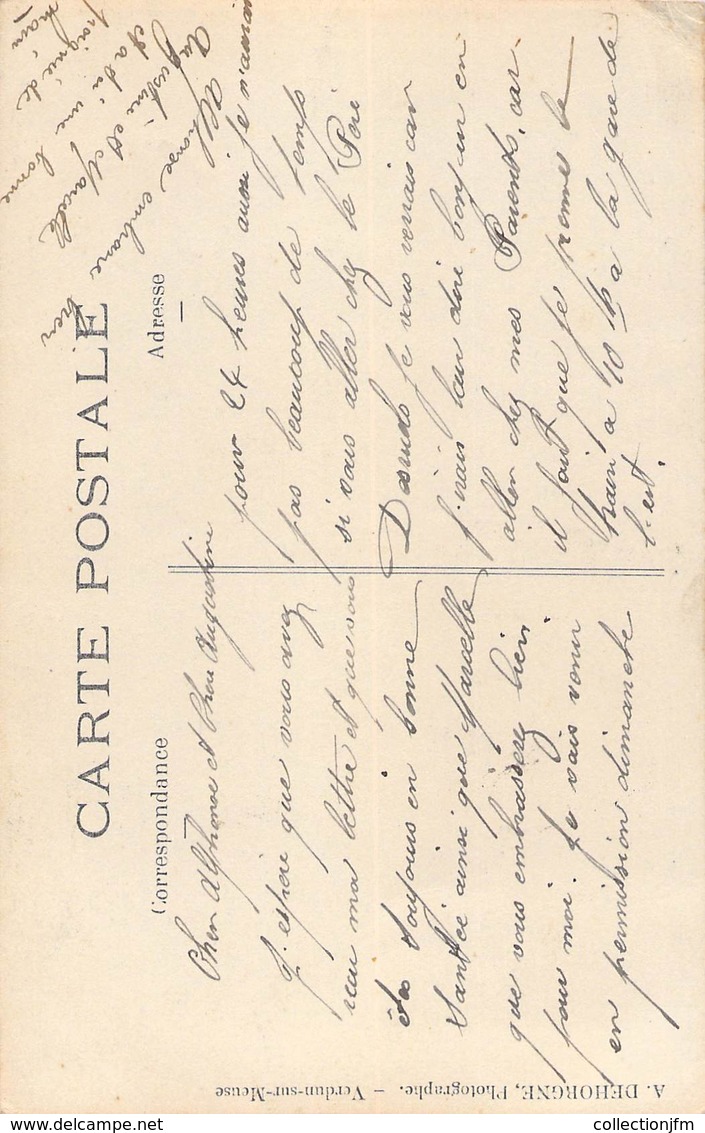 CARTE POSTALE
Correspondance
Adresse
Cher Alphonse et Chère Augustine
J'espère que vous avez
recu ma lettre et que vous
êtes toujours en bonne
Santée ainsi que Marcelle
que vous embrasserez bien
pour moi. Je vais venir
en permission dimanche
pour 24 heures aussi je n'aurai
pas beaucoup de temps
si vous aller chez le Père
je vous verrais car
j'irais leur dire bonjour en
aller chez mes Parents, car
il faut que je prennes le
train a 10 h a la gare de
l'est.
Alphonse embrasse bien
Augustine et Marcelle
et a toi une bonne
poignée de
main
A. DEHORGNE, Photographe. – Verdun-sur-Meuse
collectionjfm